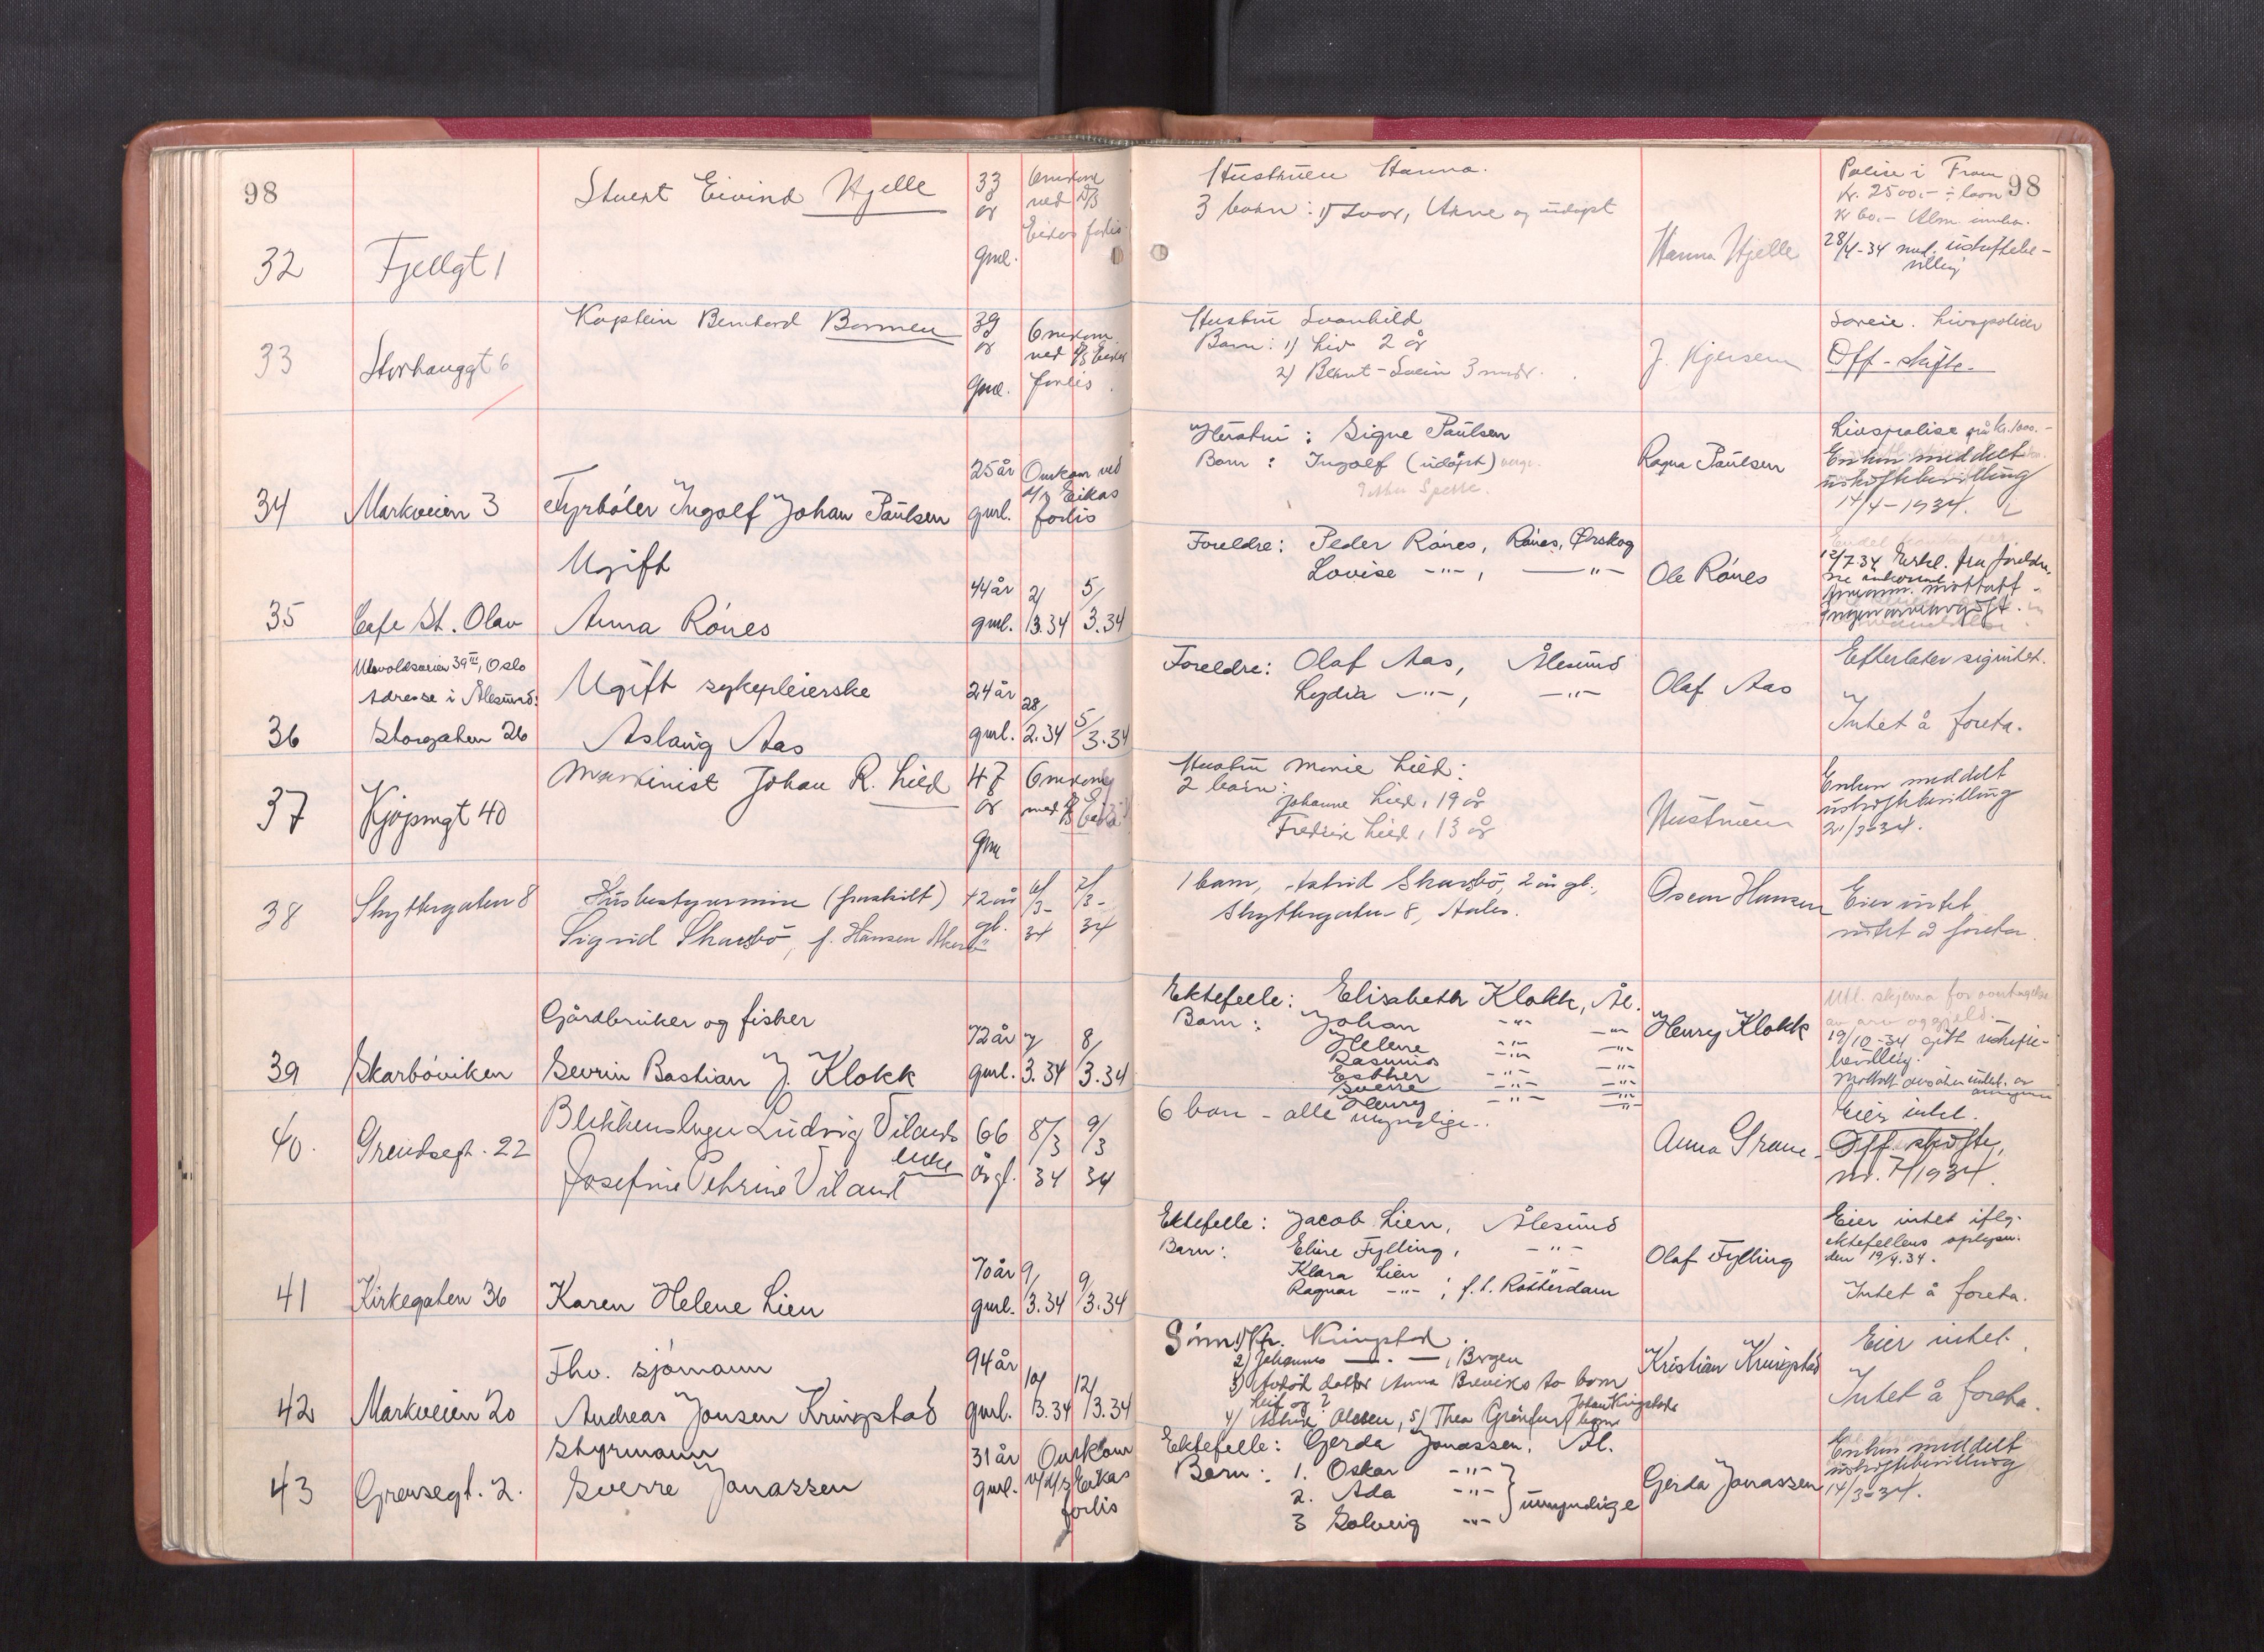 98
32
Fjellgt 1
Stuert Eivind Hjelle
33 år gml.
Omkom ved D/S Eikas forlis
Hustruen Hanna.
3 barn: 1) Ivar, Arne og udøpt
Hanna Hjelle
Polise i Fram
98
kr. 2500.- ÷ laan
kr 60.- Alm. innbo.
28/4-34 med. uskiftebe-
villing
33
Storhauggt 6
Kaptein Bernhard Bormen
39 år gml.
Omkom ved D/S Eikas forlis.
Hustru Svanhild
Barn: 1) Liv 2 år
2) Bernt-Svein 3 mndr.
J. Kjersem
Særeie. Livspoliser
Off-skifte.
34
Markveien 3
Fyrbøter Ingolf Johan Paulsen
25 år gml.
Omkom ved D/S Eikas forlis
Hustru: Signe Paulsen
Barn: Ingolf (udøpt)
Ragna Paulsen
Livspolise på kr. 1000.-
Enken meddelt
uskiftebevilling
14/4-1934.
35
Cafe St. Olav
Ugift
Anna Rönes
44 år gml.
2/3.34
5/3.34
Foreldre: Peder Rönes, Rönes, Ørskog
Lovise -"-, -"-
Ole Rönes
12/7 34 Erkl. fra foreldre-
ne
mottatt
36
Ullevoldsveien 39 III, Oslo
Adresse i Ålesund:
Storgaten 26
Ugift sykepleierske
Aslaug Aas
24 år gml.
28/2.34
5/3.34
Foreldre: Olaf Aas, Ålesund
Lydia -"-, -"-
Olaf Aas
Efterlater sig intet.
Intet å foreta.
37
Kjöpmgt 40
Maskinist Johan R. Lied
47 år gml
Omkom med D/S Eikas
Hustru Marie Lied:
2 barn:
Johanne Lied, 19 år
Fredrik Lied, 13 år
Hustruen
Enken meddelt
uskiftebevilling
21/3-34.
38
Skyttergaten 8
Husbestyrerinne (fraskilt)
Sigrid Skarbö, f. Hansen
42 år gl.
6/3-34
7/3-34
1 barn, Astrid Skarbö, 2 år gl.,
Skyttergaten 8, Aales.
Oscar Hansen
Eier intet
intet å foreta.
39
Skarböviken
Gårdbruker og fisker
Sevrin Bastian J. Klokk
72 år gml.
7/3.34
8/3.34
Ektefelle: Elisabeth Klokk, Ål.
Barn: Johan -"- -"-
Helene -"- -"-
Rasmus -"- -"-
Esther -"- -"-
Sverre -"- -"-
Henry -"- -"-
Henry Klokk
Utl. skjema for overtagelse
av arv og gjeld.
19/10-34 gitt uskifte-
bevilling.
40.
Grensegt. 22
Blikkenslager Ludvig Vilands
enke
Josefine Petrine Viland
66 år gl.
8/3 34
9/3 34
6 barn - alle myndige.
Anna Grane
Eier intet.
Off. skifte,
nr. 7/1934.
41
Kirkegaten 36
Karen Helene Lien
70 år gml.
9/3.34
9/3.34
Ektefelle: Jacob Lien, Ålesund
Barn: Eline Fylling, -"-
Klara Lien -"-
Ragnar -"-, f.t. Rotterdam
Olaf Fylling
Eier intet iflg.
ektefellens oplysn.
den 19/4.34.
Intet å foreta.
42
Markveien 20
Fhv. sjömann
Andreas Jonsen Kringstad
94 år gml.
10/3.34
12/3.34
Sönn 1) Kr. Kringstad
2) Johannes -"-, Bergen
3) Avdöd datter Anna Breviks to barn
Leif og ?
4) Astrid Olsen, 5) Thea Grönfur Johan Kringstads barn
Kristian Kringstad
Eier intet.
Intet å foreta.
43
Grensegt. 2.
Styrmann
Sverre Jonassen
31 år gml.
Omkom v/ D/S Eikas forlis
Ektefelle: Gerda Jonassen, Ål.
Barn: 1. Oskar -"-
2. Ada -"-
3 Solveig -"-
umyndige
Gerda Jonassen
Enken meddelt
uskiftebevilling
14/3-34.